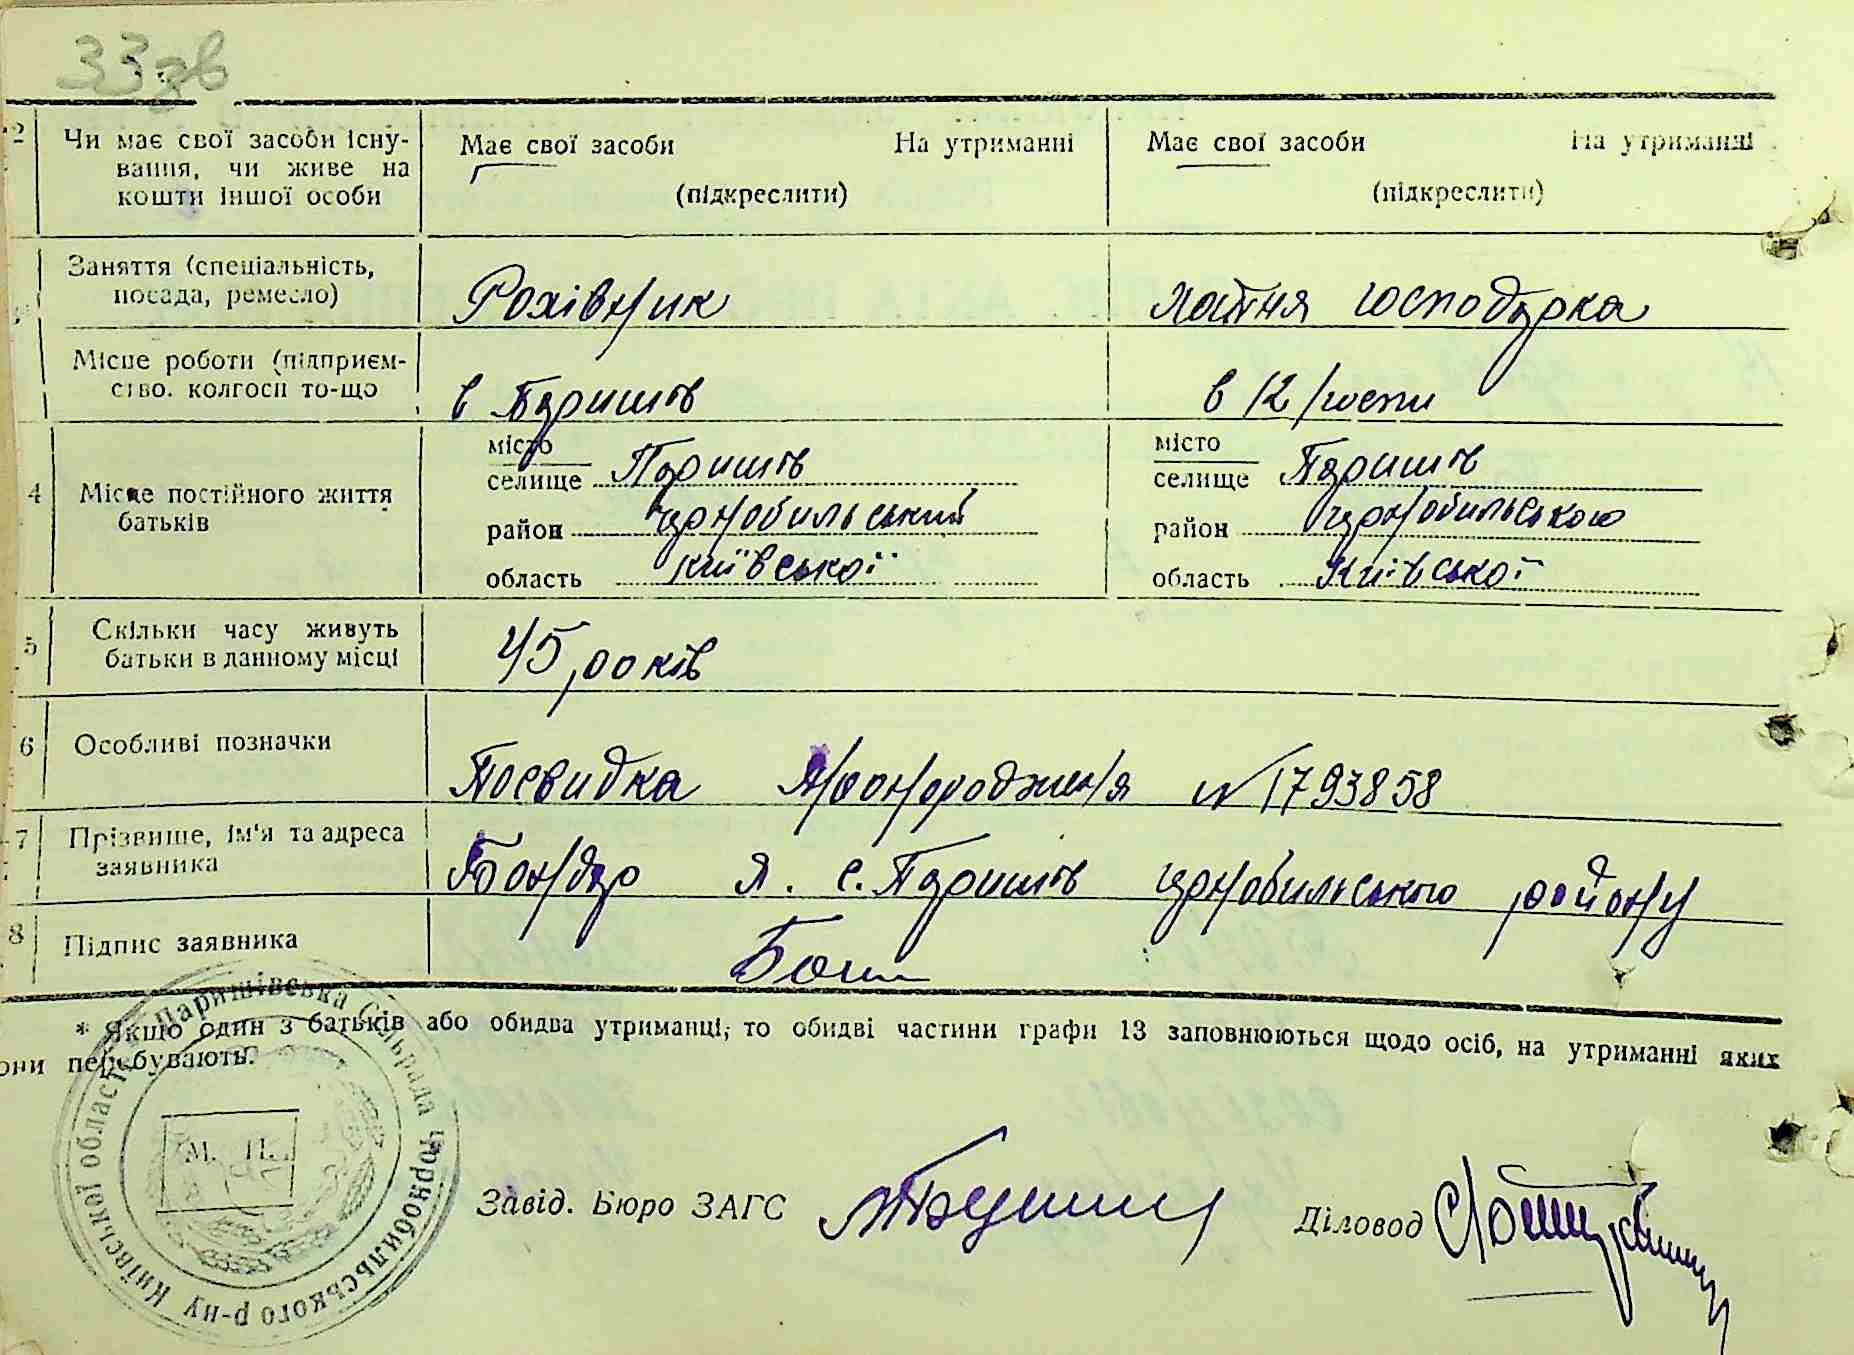 33зв
2 Чи має свої засоби існу- Має свої засоби На утриманні Має свої засоби На утриманні
вання, чи живе на
кошти іншої особи (підкреслити) (підкреслити)
Заняття (спеціальність,
посада, ремесло) Рахівник хатня господарка
Місце роботи (підприєм-
ство. колгосп то-що в Паришів в
4 Місце постійного життя батьків
місто
селище Паришів
район Чорнобильський
область Київської
місто
селище Паришів
район Чорнобильського
область Київської
5 Скільки часу живуть
батьки в данному місці 45 років
6 Особливі позначки Посвидка народження № 1793858
7 Прізвище, ім'я та адреса
заявника Бондар Я. с. Паришів Чорнобильського району
8 Підпис заявника Бон
* Якщо один з батьків або обидва утриманці, то обидві частини графи 13 заповнюються щодо осіб, на утриманні яких
вони перебувають.
Паришівська Сільрада Чорнобильського р-ну Київської області
М. П.
Завід. Бюро ЗАГС Діловод